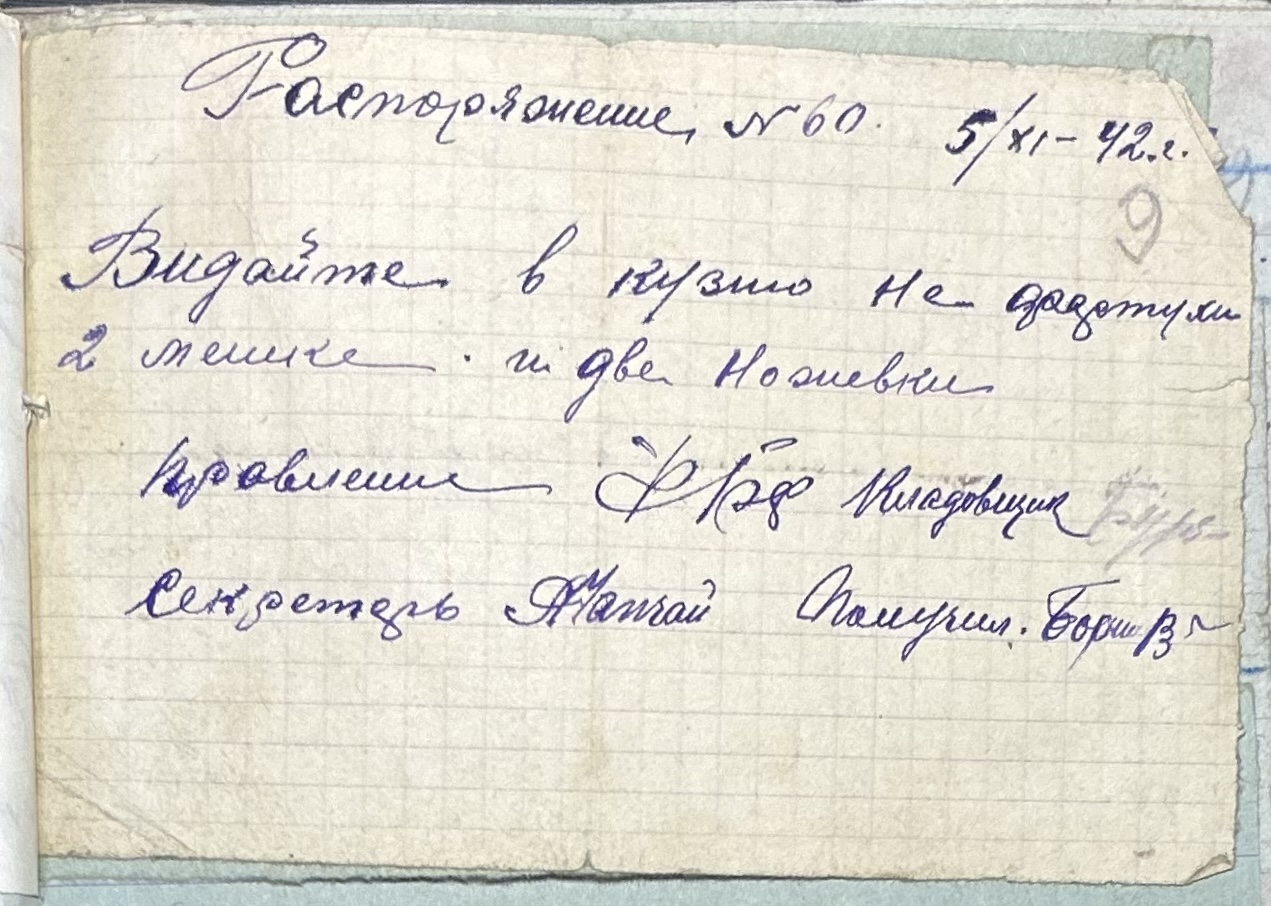 Распоряжение N 60. 5/XI – 42.г.
9
Видайте в кузню на фартухи
2 мешке и две Ножевки
Правление Кладовщик
Секретарь Получил. Борш В